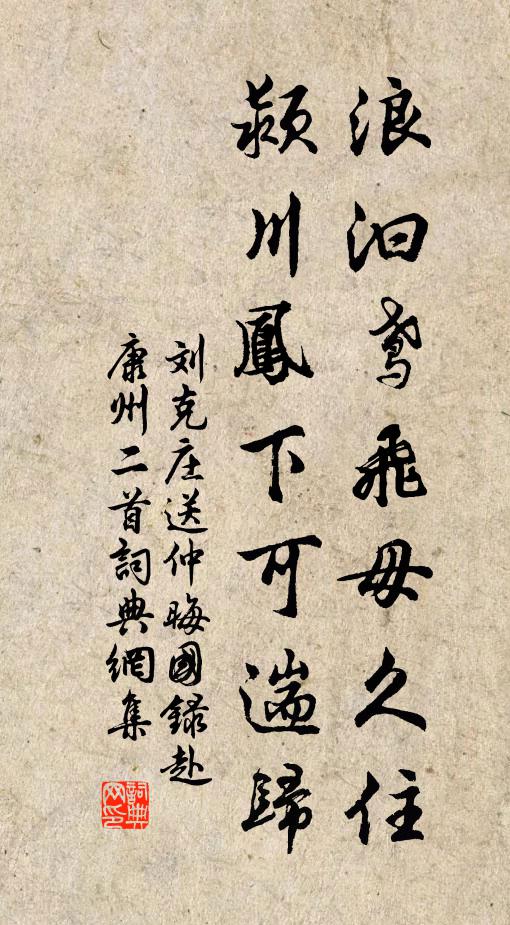 浪泊鸢飛毋久住
颍川鳳下可遄歸
刘克庄送仲晦國録赴
康州二首詞典網集
詞典
网印